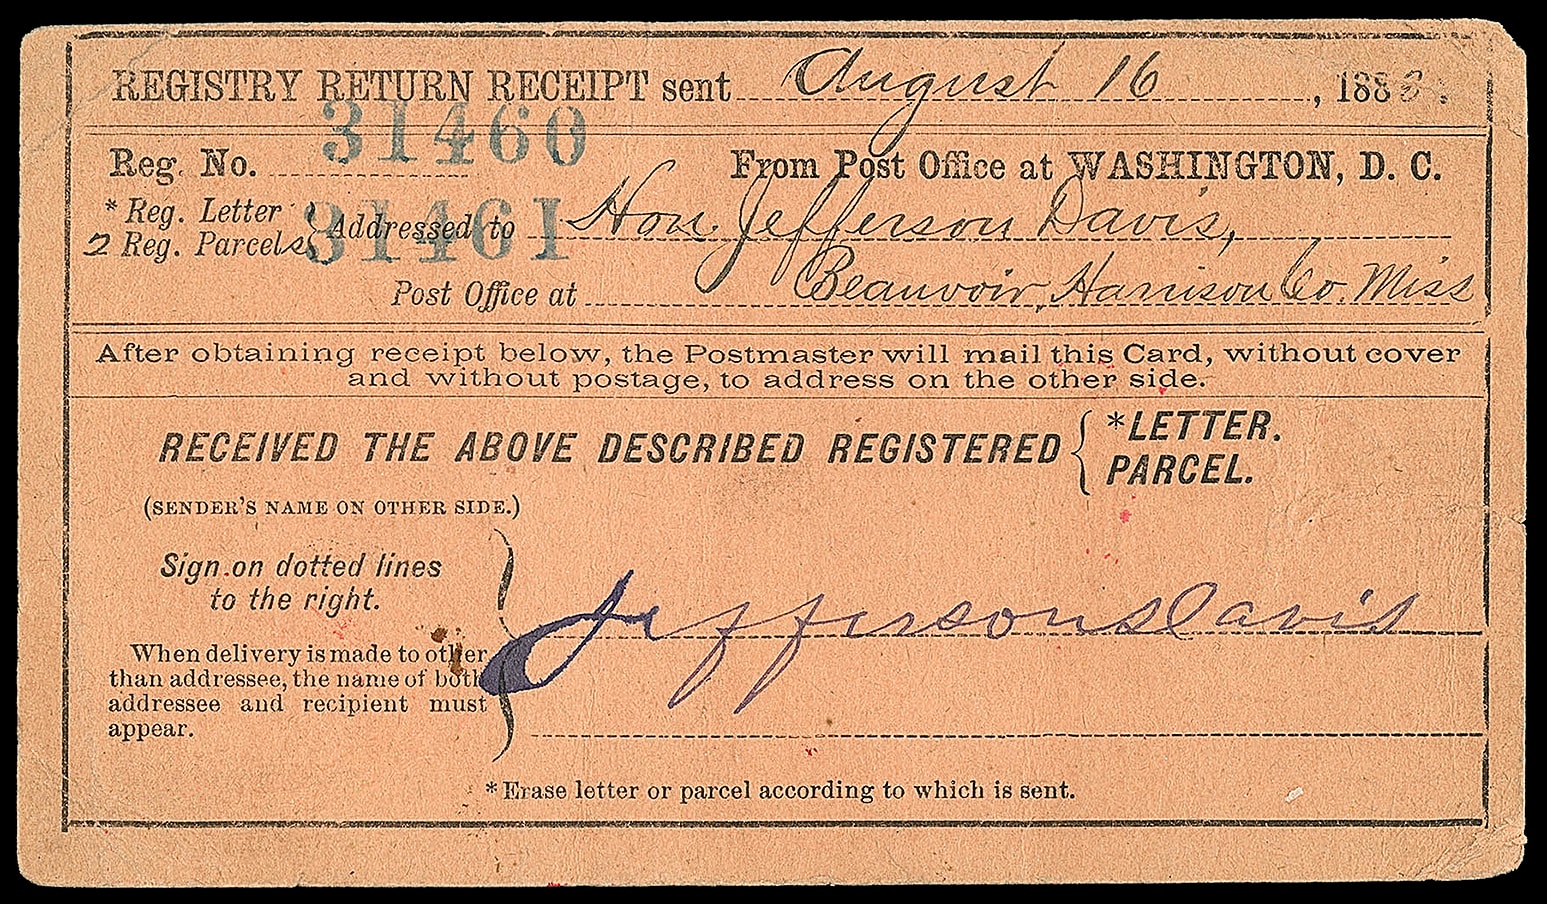 REGISTRY RETURN RECEIPT sent August 16, 188
31460
Reg. No. From Post Office at WASHINGTON, D. C.
* Reg. Letter
2 Reg. Parcels } Addressed to Hon. Jefferson Davis,
31461
Post Office at Beauvoir, Harrison Co. Miss
After obtaining receipt below, the Postmaster will mail this Card, without cover
and without postage, to address on the other side.
RECEIVED THE ABOVE DESCRIBED REGISTERED { *LETTER.
PARCEL.
(SENDER'S NAME ON OTHER SIDE.)
Sign on dotted lines
to the right.
Jefferson Davis
When delivery is made to other
than addressee, the name of both
addressee and recipient must
appear.
*Erase letter or parcel according to which is sent.